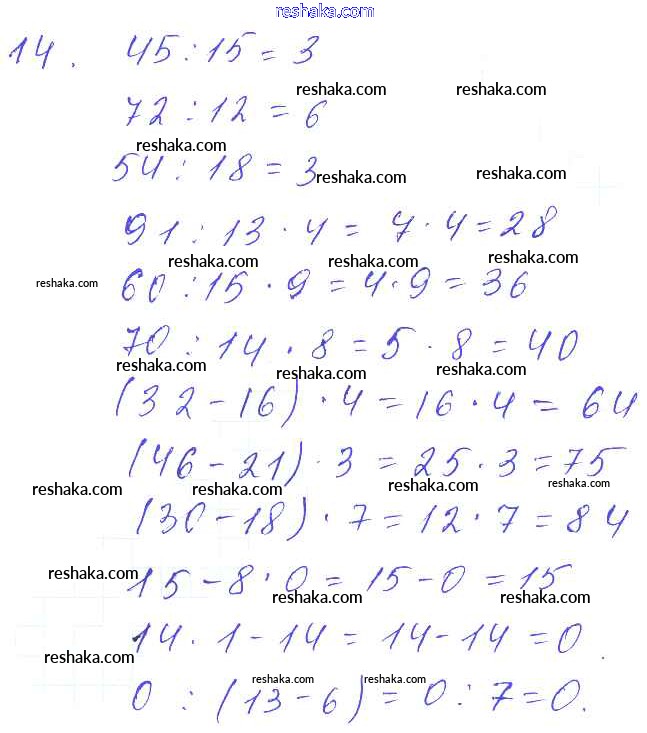 reshaka.com
14. 45 : 15 = 3
reshaka.com reshaka.com
72 : 12 = 6
reshaka.com
54 : 18 = 3
reshaka.com reshaka.com
91 : 13 · 4 = 7 · 4 = 28
reshaka.com reshaka.com reshaka.com
reshaka.com
60 : 15 · 9 = 4 · 9 = 36
70 : 14 · 8 = 5 · 8 = 40
reshaka.com reshaka.com reshaka.com
(32 - 16) · 4 = 16 · 4 = 64
(46 - 21) · 3 = 25 · 3 = 75
reshaka.com reshaka.com reshaka.com reshaka.com
(30 - 18) · 7 = 12 · 7 = 84
reshaka.com
15 - 8 · 0 = 15 - 0 = 15
reshaka.com reshaka.com
14 · 1 - 14 = 14 - 14 = 0
reshaka.com
reshaka.com reshaka.com
0 : (13 - 6) = 0 : 7 = 0.